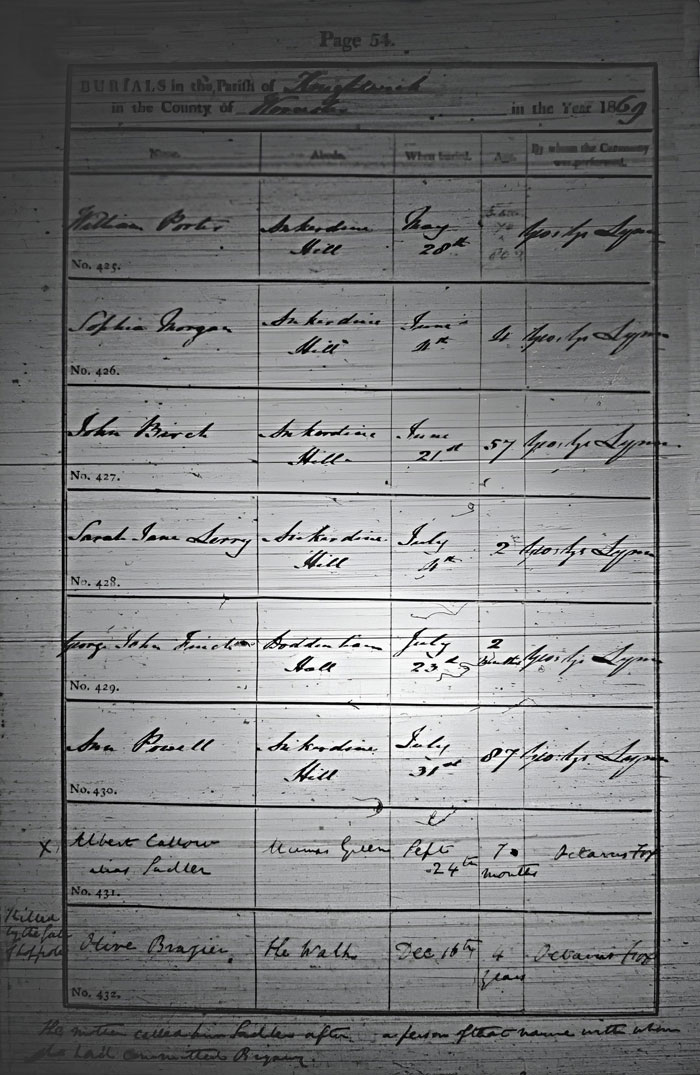 Page 54.
BURIALS in the Parish of Knightwick
in the County of Worcester in the Year 1869
Name. Abode. When buried. Age. By whom the Ceremony was performed.
William Porter Ankerdine Hill May 28th Lynn
No. 425.
Sophia Morgan Ankerdine Hill June 4th 4 Lynn
No. 426.
John Birch Ankerdine Hill June 21st 57 Lynn
No. 427.
Sarah Jane Lerry Ankerdine Hill July 4th 2 Lynn
No. 428.
George John Finch Doddenham Hall July 23d 2 Months Lynn
No. 429.
Ann Powell Ankerdine Hill July 31st 87 Lynn
No. 430.
X Albert Callow alias Sadler Green Sept 24th 7 months Octavius Fox
No. 431.
Killed by the fall of hop poles Olive Brazier The Walk Dec 16th 4 years Octavius Fox
No. 432.
The mother called him Sadler after a person of that name with whom
she had committed Bigamy.